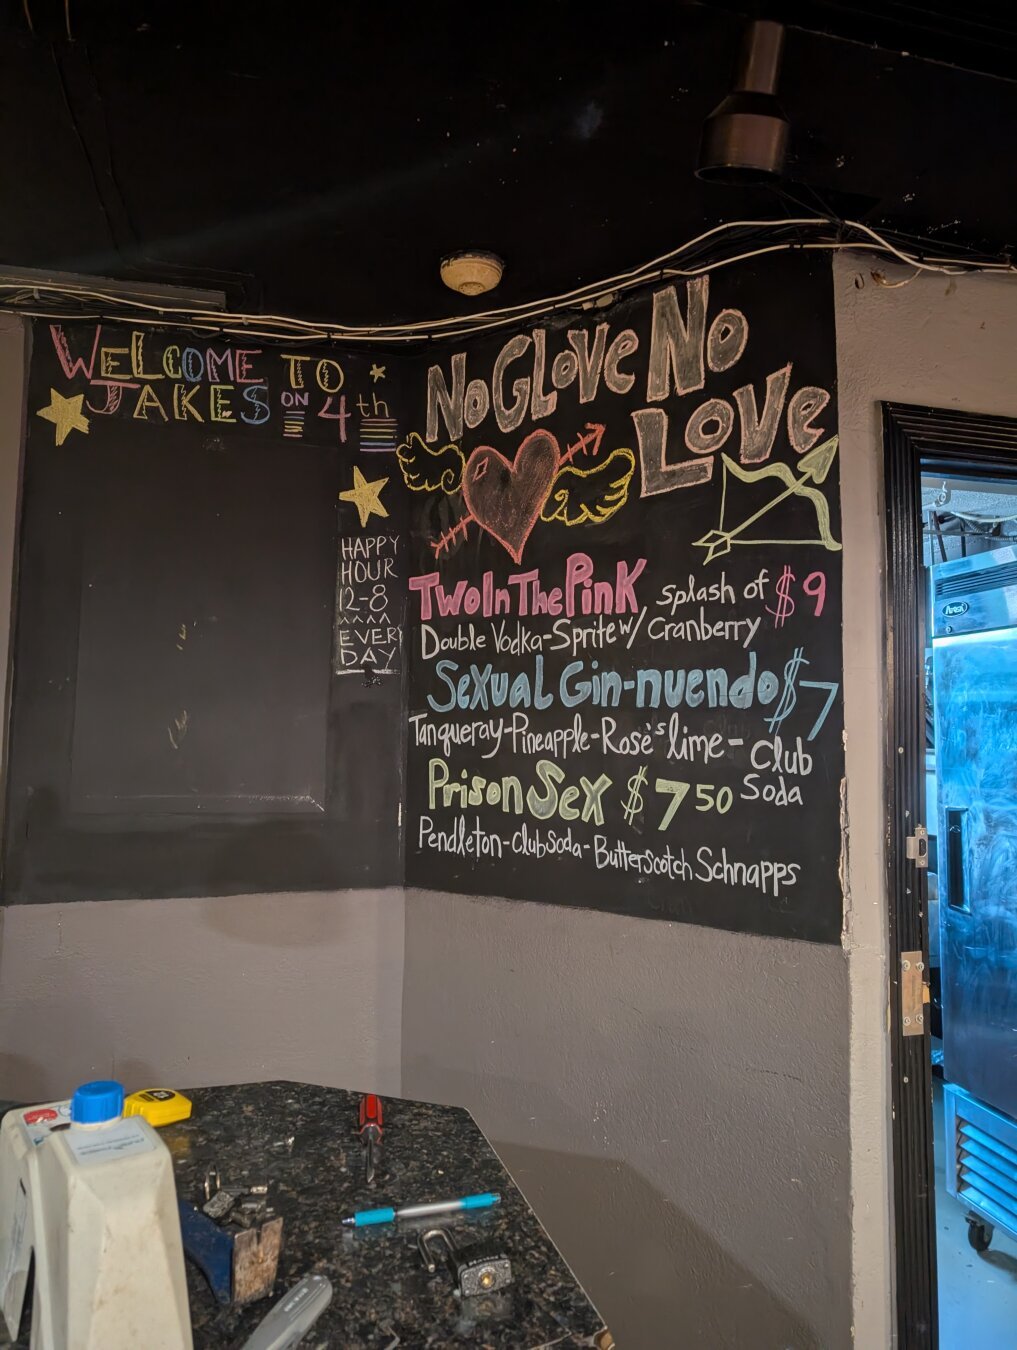 WELCOME TO
JAKES ON 4th
HAPPY
HOUR
12-8
^^^^
EVERY
DAY
No GLove No
Love
TwoInThePink splash of $9
Double Vodka-Sprite w/ Cranberry
Sexual Gin-nuendo $7
Tanqueray-Pineapple-Rosè's lime - Club
Soda
Prison Sex $7 50
Pendleton-Club Soda-Butterscotch Schnapps